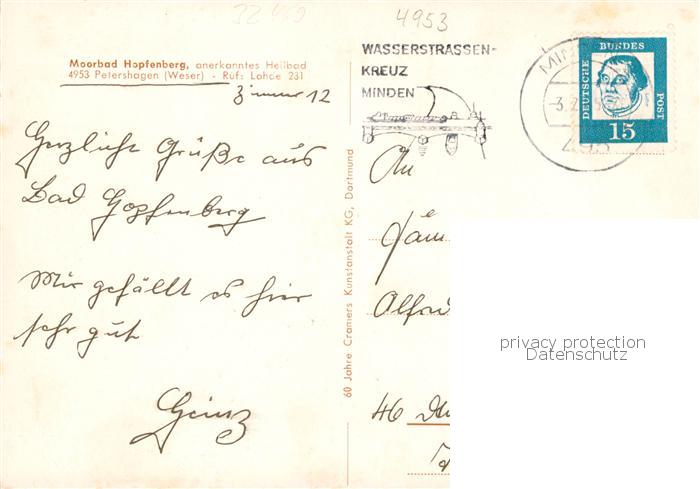 4953
Moorbad Hopfenberg, anerkanntes Heilbad
4953 Petershagen (Weser) - Ruf: Lahde 231
Zimmer 12
Herzliche Grüße aus
Bad Hopfenberg
Mir gefällt es hier
sehr gut
Heinz
60 Jahre Cramers Kunstanstalt KG, Dortmund
WASSERSTRASSEN-
KREUZ
MINDEN
DEUTSCHE
BUNDES
POST
15
An
Alfred
46
privacy protection
Datenschutz